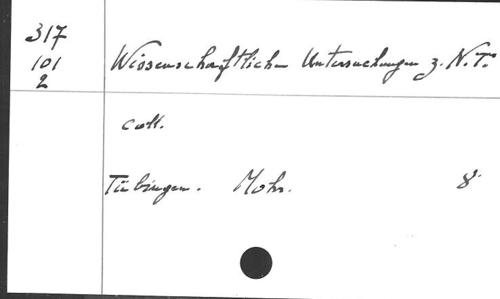 317
101 Wissenschaftliche Untersuchungen z. N.T.
2
coll.
Tübingen. Mohr. 8°